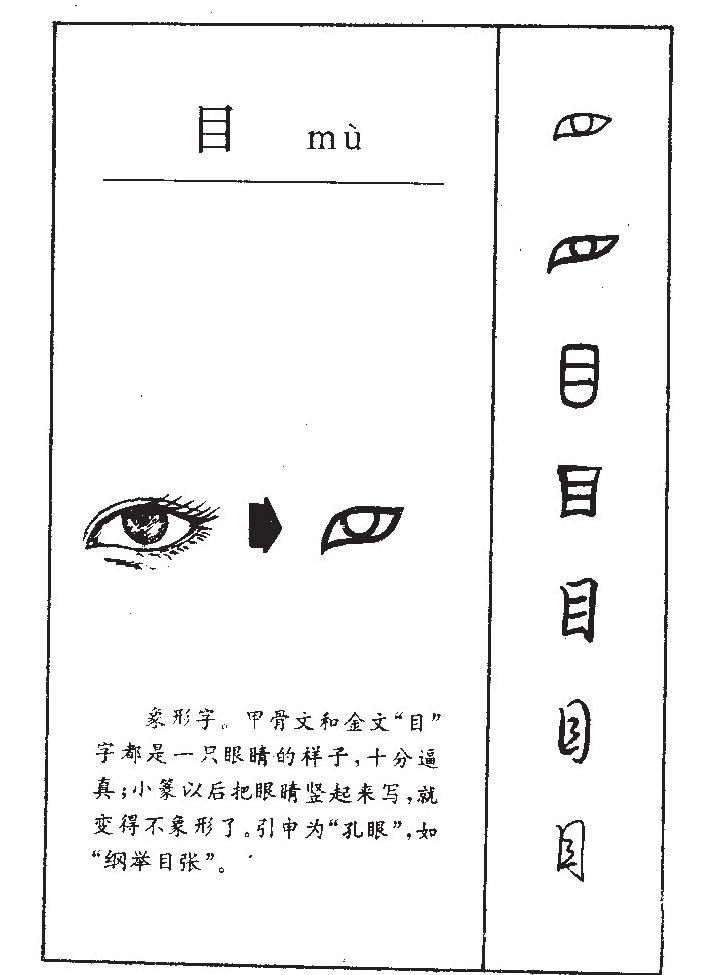 目 mù
象形字。甲骨文和金文“目”
字都是一只眼睛的样子，十分逼
真；小篆以后把眼睛竖起来写，就
变得不象形了。引申为“孔眼”，如
“纲举目张”。
目
目
目
目
目